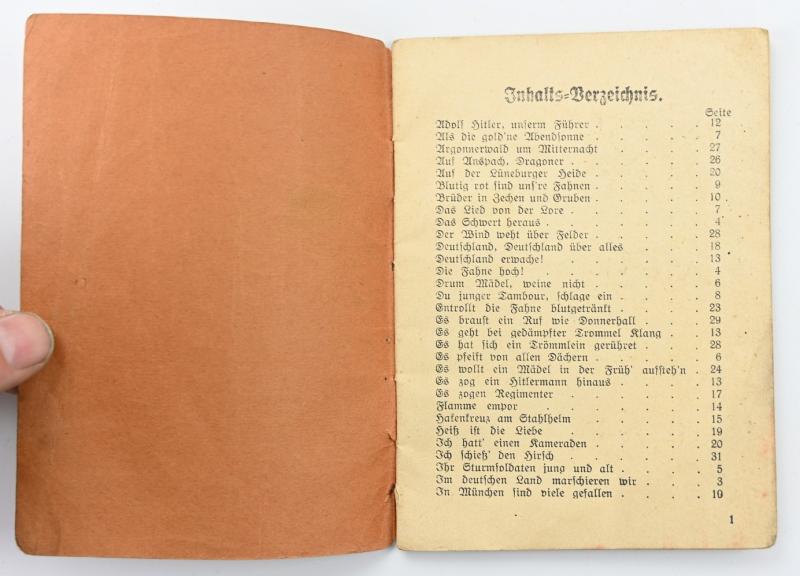 Inhalts-Verzeichnis.
Seite
Adolf Hitler, unserm Führer . . . . . 12
Als die gold'ne Abendsonne . . . . . 7
Argonnerwald um Mitternacht . . . . 27
Auf Anspach, Dragoner . . . . . . 26
Auf der Lüneburger Heide . . . . . 20
Blutig rot sind uns're Fahnen . . . . . 9
Brüder in Zechen und Gruben . . . . . 10
Das Lied von der Lore . . . . . . 7
Das Schwert heraus . . . . . . . 4
Der Wind weht über Felder . . . . . 28
Deutschland, Deutschland über alles . . . . 18
Deutschland erwache! . . . . . . 13
Die Fahne hoch! . . . . . . 4
Drum Mädel, weine nicht . . . . . 6
Du junger Tambour, schlage ein . . . . . 8
Entrollt die Fahne blutgetränkt . . . . . 23
Es braust ein Ruf wie Donnerhall . . . . 29
Es geht bei gedämpfter Trommel Klang . . . 13
Es hat sich ein Trömmlein gerühret . . . . 28
Es pfeift von allen Dächern . . . . . 6
Es wollt ein Mädel in der Früh' aufsteh'n . . 24
Es zog ein Hitlermann hinaus . . . . . 13
Es zogen Regimenter . . . . . . 17
Flamme empor . . . . . . . 14
Hakenkreuz am Stahlhelm . . . . . 15
Heiß ist die Liebe . . . . . . 19
Ich hatt' einen Kameraden . . . . . 20
Ich schieß' den Hirsch . . . . . . 31
Ihr Sturmsoldaten jung und alt . . . . 5
Im deutschen Land marschieren wir . . . . 3
In München sind viele gefallen . . . . 19
1